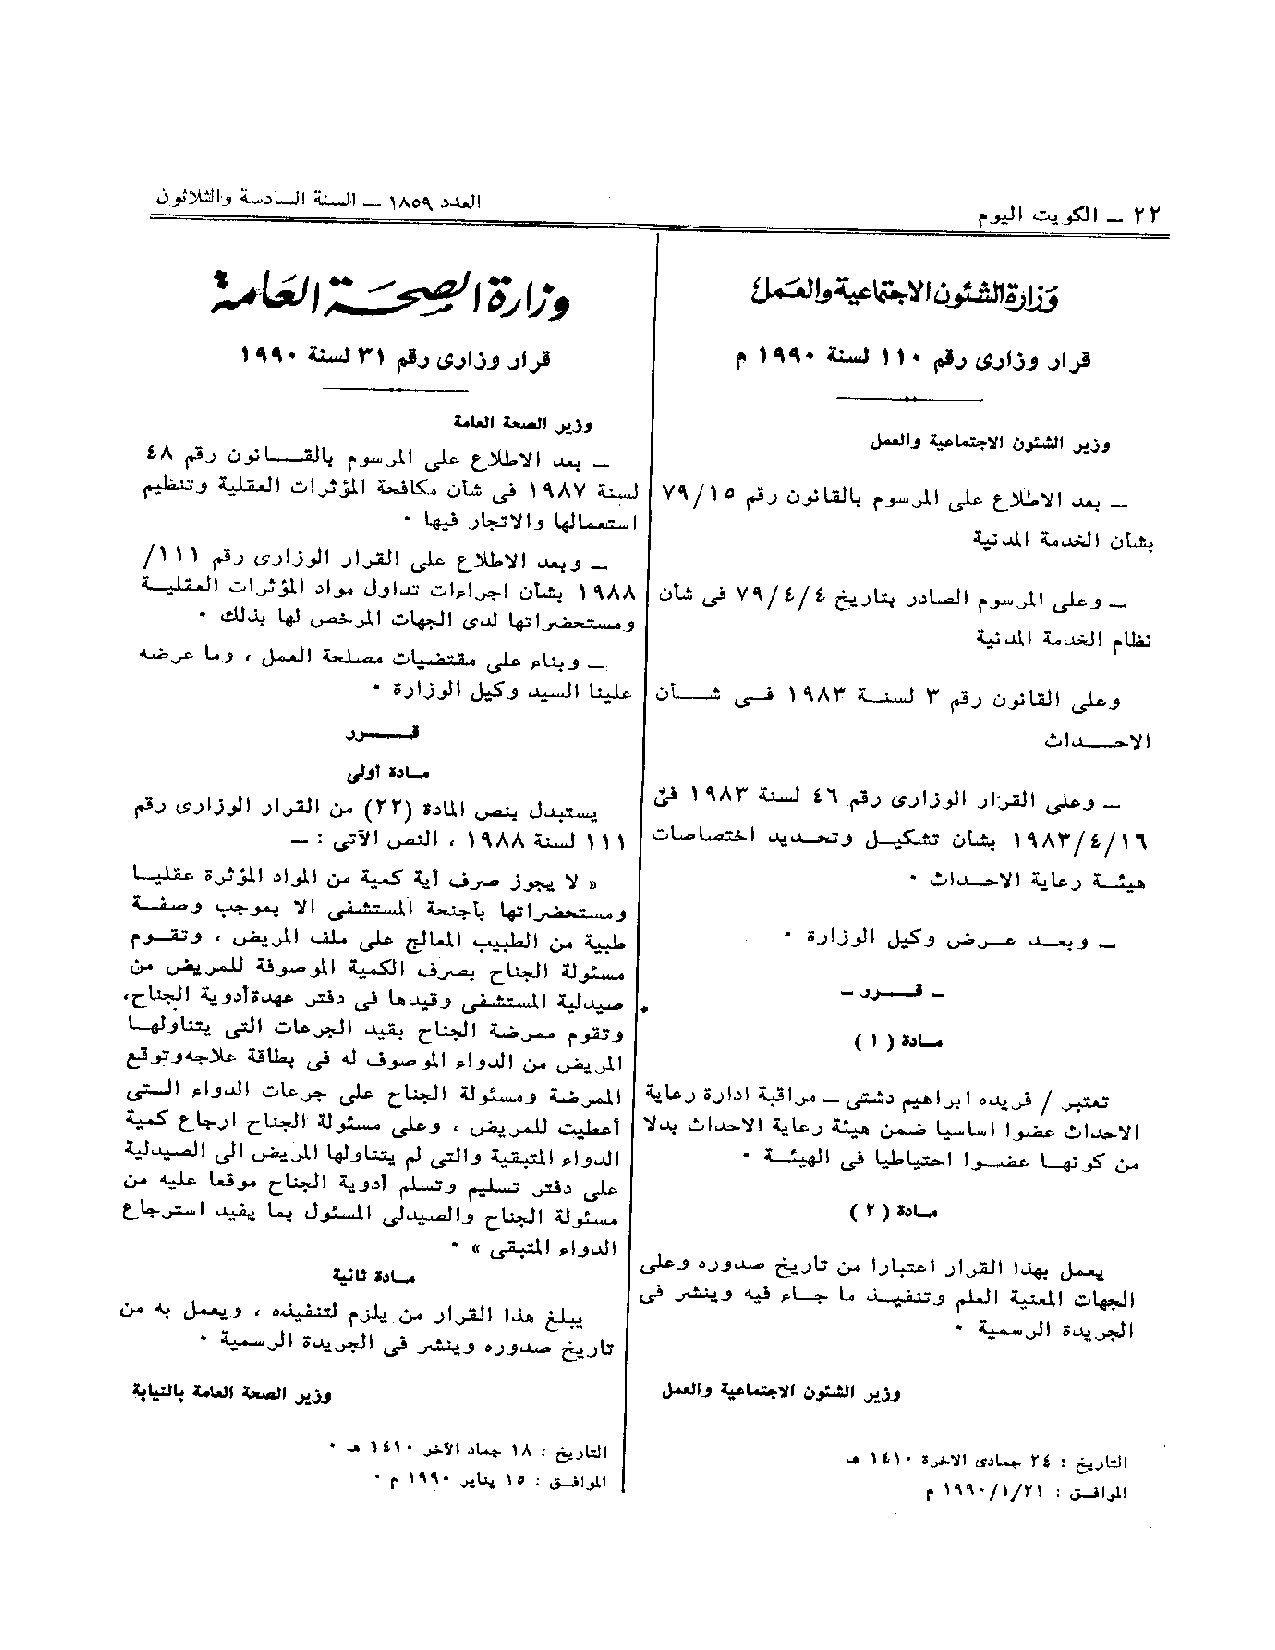 ٢٢ ــ الكويت اليوم
العدد ١٨٥٩ ــ السنة السادسة والثلاثون
وزارة الشئون الاجتماعية والعمل
قرار وزارى رقم ١١٠ لسنة ١٩٩٠ م
وزير الشئون الاجتماعية والعمل
ــ بعد الاطلاع على المرسوم بالقانون رقم ٧٩/١٥
بشأن الخدمة المدنية
ــ وعلى المرسوم الصادر بتاريخ ٧٩/٤/٤ فى شأن
نظام الخدمة المدنية
وعلى القانون رقم ٣ لسنة ١٩٨٣ فى شأن
الاحداث
ــ وعلى القرار الوزارى رقم ٤٦ لسنة ١٩٨٣ فى
١٩٨٣/٤/١٦ بشأن تشكيل وتحديد اختصاصات
هيئة رعاية الاحداث ٠
ــ وبعد عرض وكيل الوزارة ٠
ــ قرر ــ
مادة ( ١ )
تعتبر / فريده ابراهيم دشتى ــ مراقبة ادارة رعاية
الاحداث عضوا اساسيا ضمن هيئة رعاية الاحداث بدلا
من كونها عضوا احتياطيا فى الهيئة ٠
مادة ( ٢ )
يعمل بهذا القرار اعتبارا من تاريخ صدوره وعلى
الجهات المعنية العلم وتنفيذ ما جاء فيه وينشر فى
الجريدة الرسمية ٠
وزير الشئون الاجتماعية والعمل
التاريخ : ٢٤ جمادى الاخرة ١٤١٠ هـ
الموافق : ١٩٩٠/١/٢١ م
وزارة الصحة العامة
قرار وزارى رقم ٣١ لسنة ١٩٩٠
وزير الصحة العامة
ــ بعد الاطلاع على المرسوم بالقانون رقم ٤٨
لسنة ١٩٨٧ فى شأن مكافحة المؤثرات العقلية وتنظيم
استعمالها والاتجار فيها ٠
ــ وبعد الاطلاع على القرار الوزارى رقم ١١١/
١٩٨٨ بشأن اجراءات تداول مواد المؤثرات العقلية
ومستحضراتها لدى الجهات المرخص لها بذلك ٠
ــ وبناء على مقتضيات مصلحة العمل ، وما عرضه
علينا السيد وكيل الوزارة ٠
قرر
مادة أولى
يستبدل بنص المادة (٢٢) من القرار الوزارى رقم
١١١ لسنة ١٩٨٨ ، النص الآتى : ــ
« لا يجوز صرف أية كمية من المواد المؤثرة عقليا
ومستحضراتها بأجنحة المستشفى الا بموجب وصفة
طبية من الطبيب المعالج على ملف المريض ، وتقوم
مسئولة الجناح بصرف الكمية الموصوفة للمريض من
صيدلية المستشفى وقيدها فى دفتر عهدة أدوية الجناح،
وتقوم ممرضة الجناح بقيد الجرعات التى يتناولها
المريض من الدواء الموصوف له فى بطاقة علاجه وتوقع
الممرضة ومسئولة الجناح على جرعات الدواء التى
أعطيت للمريض ، وعلى مسئولة الجناح ارجاع كمية
الدواء المتبقية والتى لم يتناولها المريض الى الصيدلية
على دفتر تسليم وتسلم أدوية الجناح موقعا عليه من
مسئولة الجناح والصيدلى المسئول بما يفيد استرجاع
الدواء المتبقى » ٠
مادة ثانية
يبلغ هذا القرار من يلزم لتنفيذه ، ويعمل به من
تاريخ صدوره وينشر فى الجريدة الرسمية ٠
وزير الصحة العامة بالنيابة
التاريخ : ١٨ جماد الآخر ١٤١٠ هـ ٠
الموافق : ١٥ يناير ١٩٩٠ م ٠